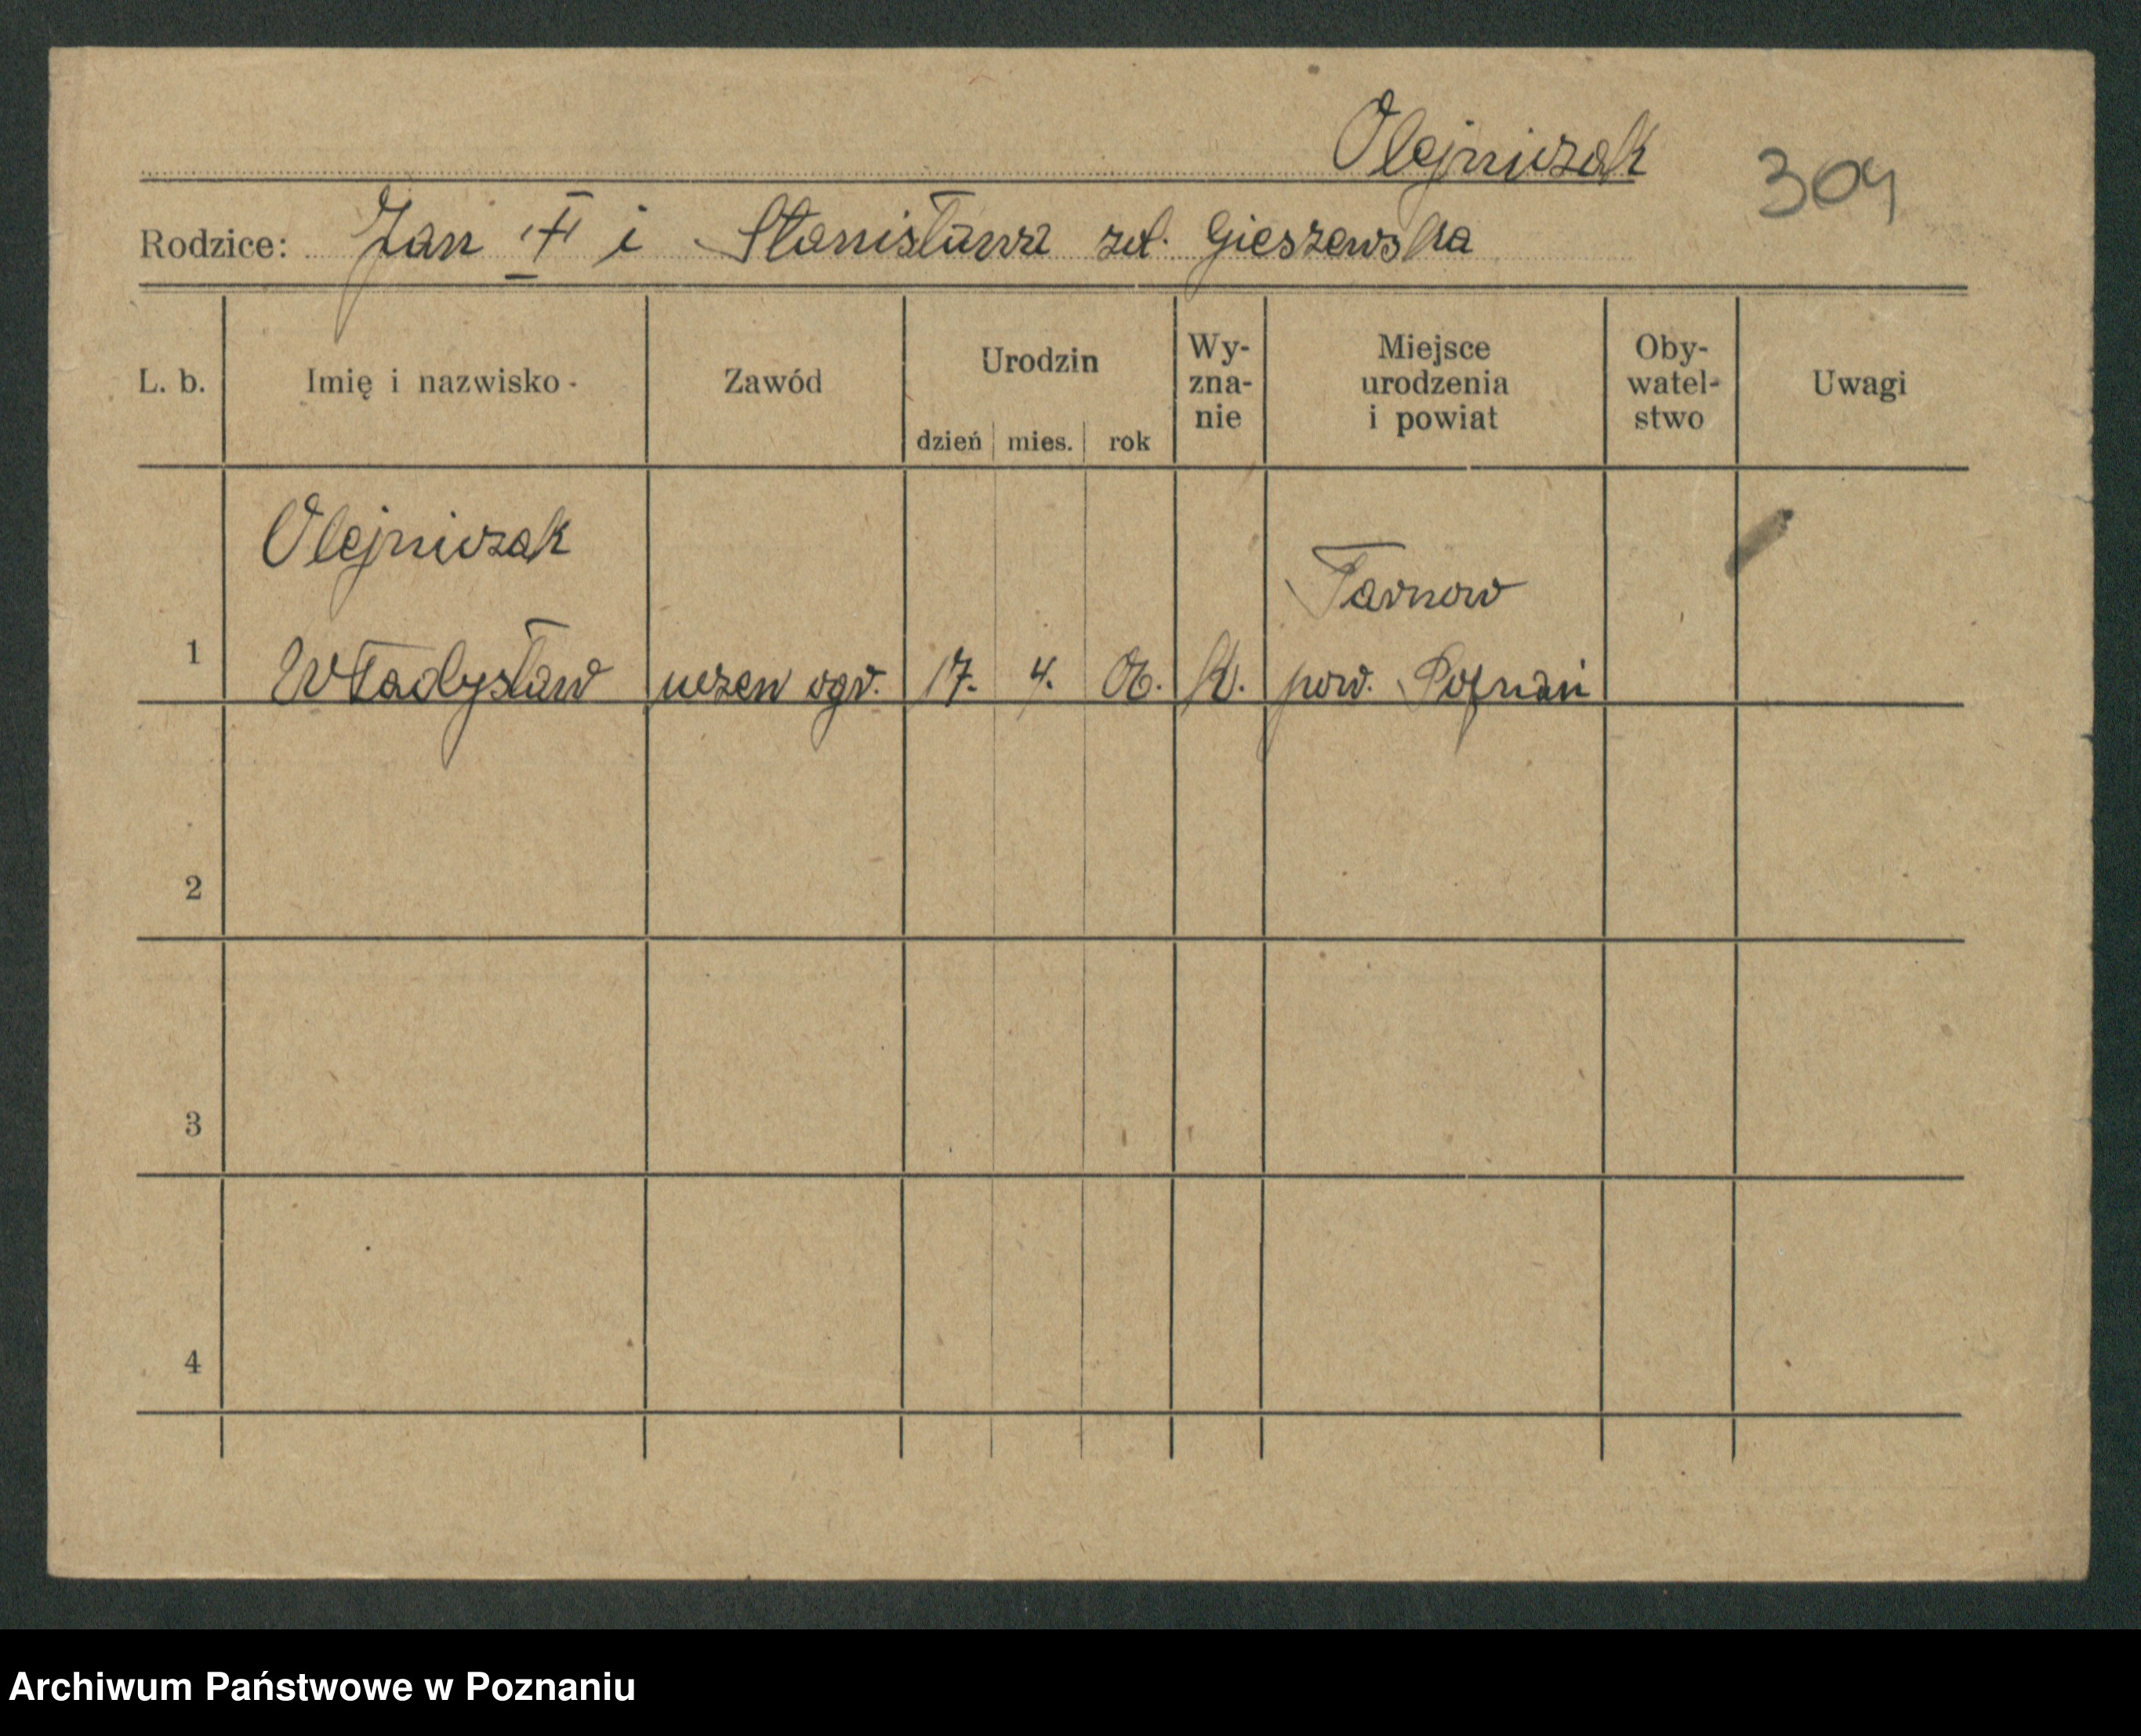 Olejniczak
304
Rodzice: Jan + i Stanisława zd. Gieszewska
L. b. Imię i nazwisko Zawód Urodzin dzień mies. rok Wy-zna-nie Miejsce urodzenia i powiat Oby-watel-stwo Uwagi
Olejniczak
Tarnow
1 Władysław uczen ogr. 17. 4. 06. K. pow. Poznań
2
3
4
Archiwum Państwowe w Poznaniu